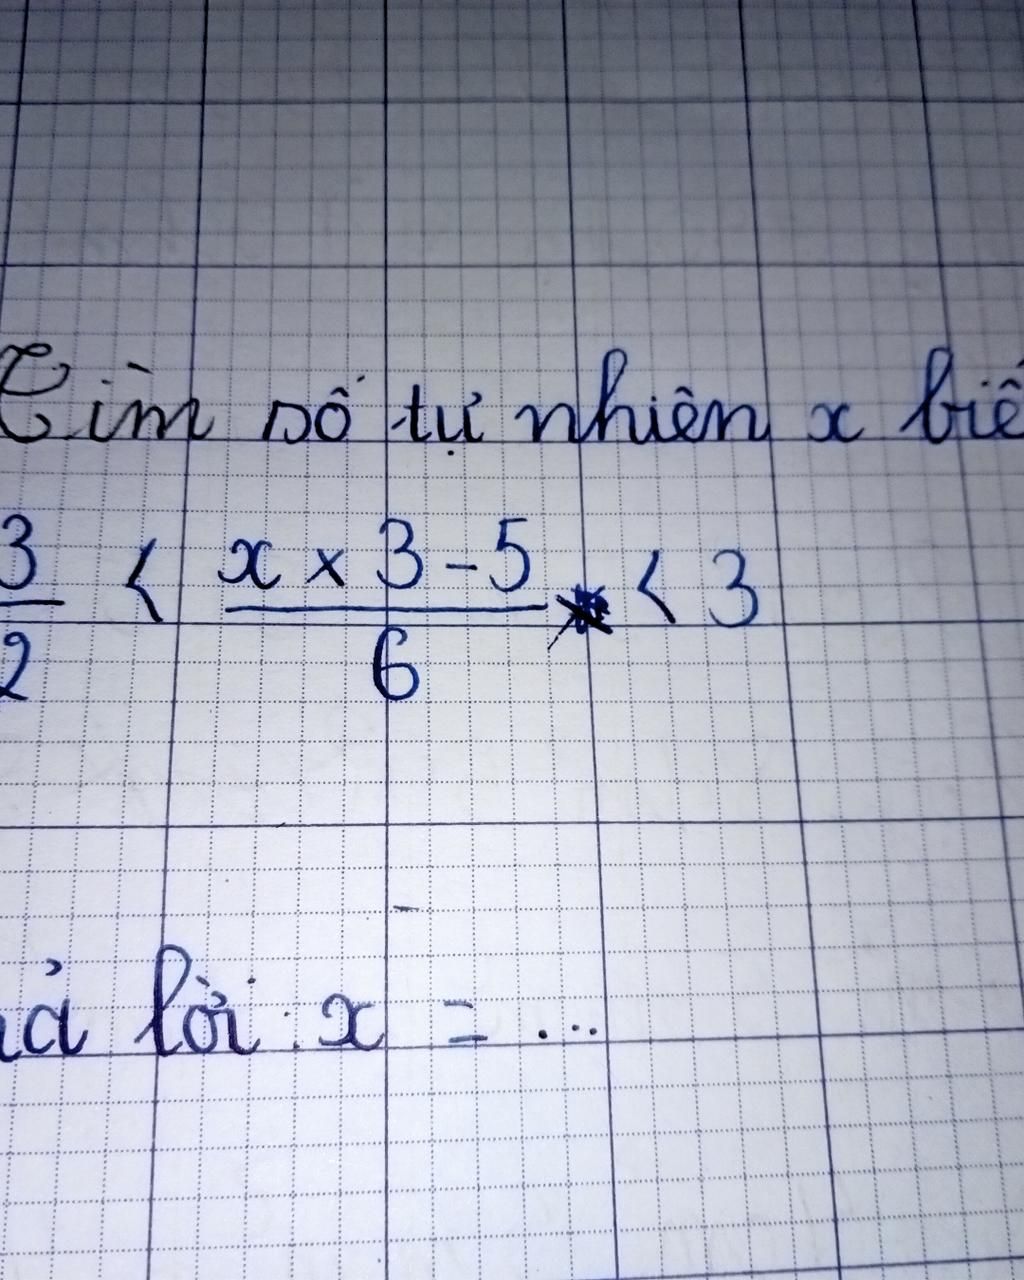 Tìm số tự nhiên x biế
3/2 < (x × 3 - 5)/6 < 3
ả lời: x = ...